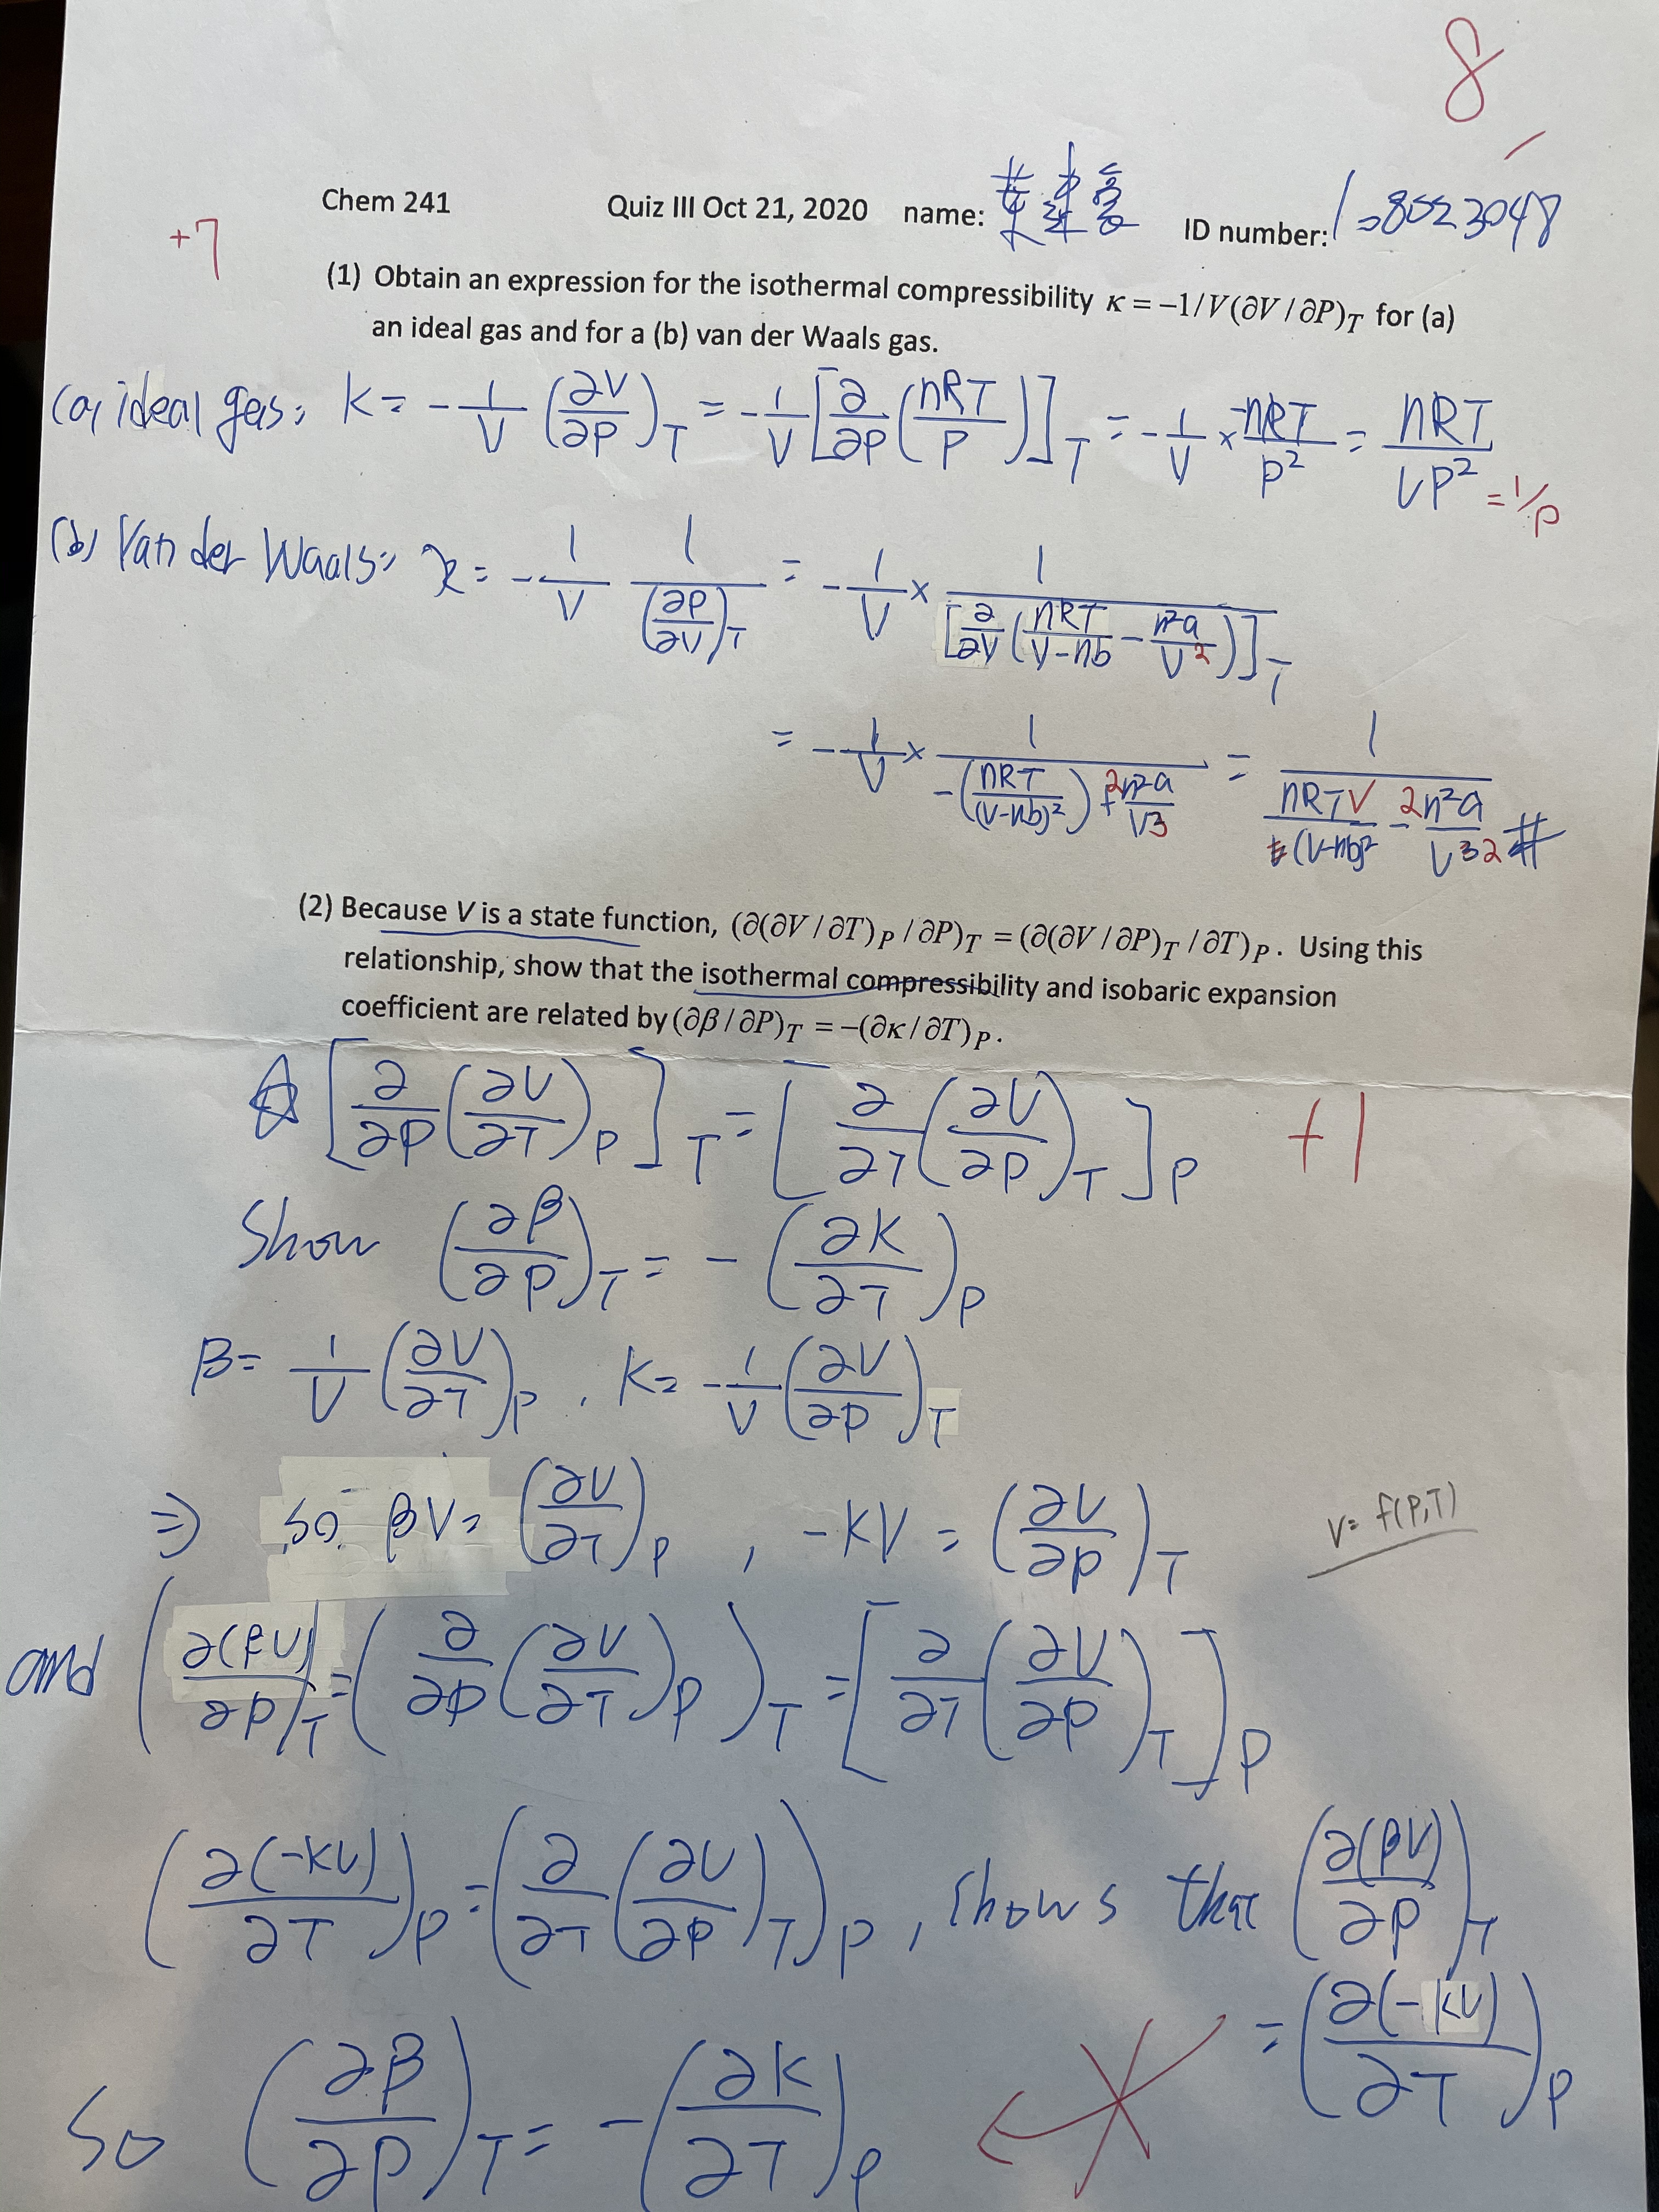 8
Chem 241 Quiz III Oct 21, 2020 name: ID number: 108023048
+7
(1) Obtain an expression for the isothermal compressibility κ = −1/V(∂V/∂P)_T for (a)
an ideal gas and for a (b) van der Waals gas.
(a) ideal gas: K = -1/V (∂V/∂P)_T = -1/V [∂/∂P (nRT/P)]_T = -1/V × -nRT/P² = nRT/VP² = 1/P
(b) Van der Waals: K = -1/V 1/(∂P/∂V)_T = -1/V × 1/[∂/∂V (nRT/V-nb - n²a/V²)]_T
= -1/V × 1/(-(nRT/(V-nb)²) + 2n²a/V3) = 1/(nRTV/(V-nb)² - 2n²a/V32) #
(2) Because V is a state function, (∂(∂V/∂T)_P/∂P)_T = (∂(∂V/∂P)_T/∂T)_P. Using this
relationship, show that the isothermal compressibility and isobaric expansion
coefficient are related by (∂β/∂P)_T = −(∂κ/∂T)_P.
☆ [∂/∂P (∂V/∂T)_P]_T = [∂/∂T (∂V/∂P)_T]_P +1
Show (∂β/∂P)_T = - (∂K/∂T)_P
β = 1/V (∂V/∂T)_P , K = -1/V (∂V/∂P)_T
⇒ so βV = (∂V/∂T)_P , -KV = (∂V/∂P)_T V = f(P,T)
and (∂(βV)/∂P)_T = (∂/∂P (∂V/∂T)_P)_T = [∂/∂T (∂V/∂P)_T]_P
(∂(-KV)/∂T)_P = (∂/∂T (∂V/∂P)_T)_P , shows that (∂(βV)/∂P)_T
= (∂(-KV)/∂T)_P
So (∂β/∂P)_T = - (∂K/∂T)_P